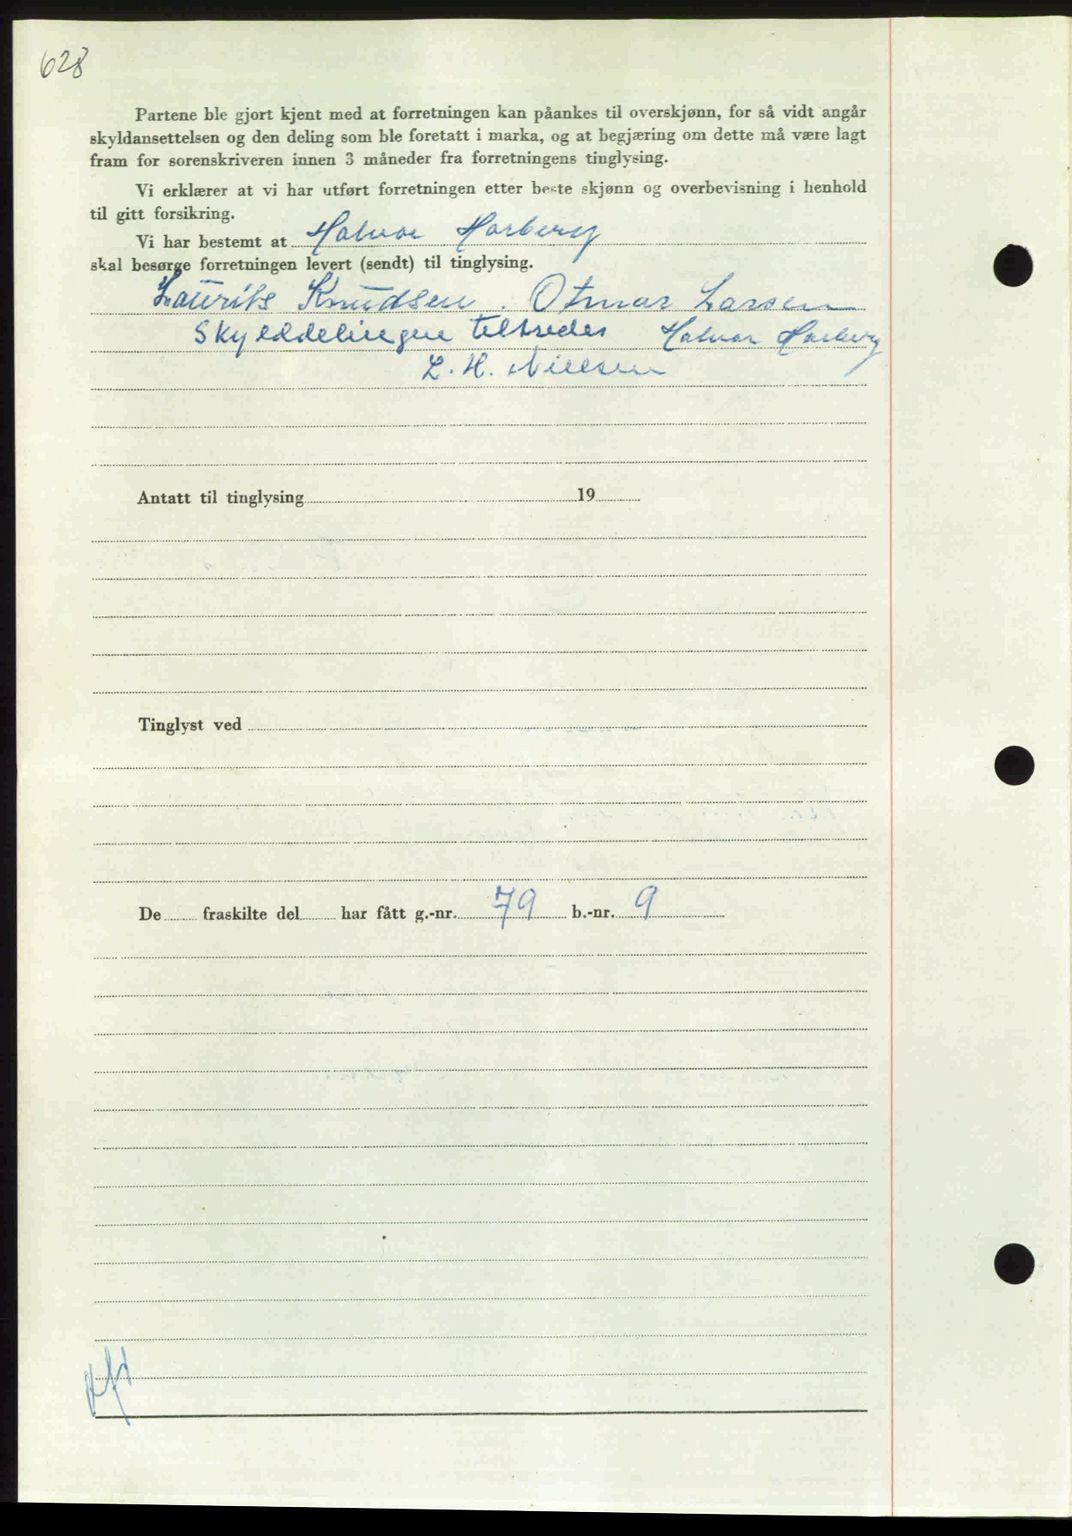 628
Partene ble gjort kjent med at forretningen kan påankes til overskjønn, for så vidt angår
skyldansettelsen og den deling som ble foretatt i marka, og at begjæring om dette må være lagt
fram for sorenskriveren innen 3 måneder fra forretningens tinglysing.
Vi erklærer at vi har utført forretningen etter beste skjønn og overbevisning i henhold
til gitt forsikring.
Vi har bestemt at Halvar Harberg
skal besørge forretningen levert (sendt) til tinglysing.
Laurits Knudsen. Otmar Larsen
Skylddelingen tiltredes Halvar Harberg
L. H. Nielsen
Antatt til tinglysing 19
Tinglyst ved
De fraskilte del har fått g.-nr. 79 b.-nr. 9